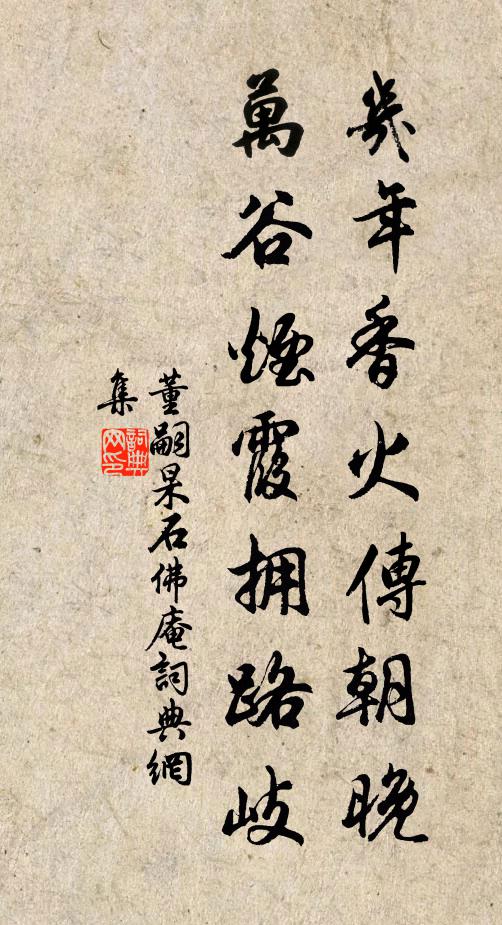 幾年香火傳朝晚
萬谷煙霞擁路岐
董嗣杲石佛庵詞典網
集
詞典網印